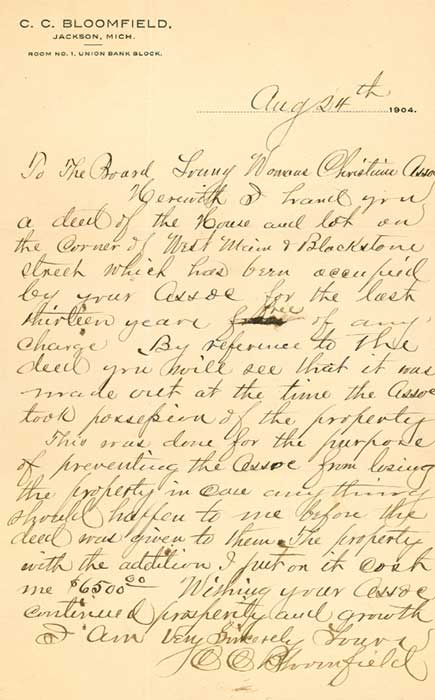 C. C. BLOOMFIELD,
JACKSON, MICH.
ROOM NO. 1, UNION BANK BLOCK.
Aug 24th 1904.
To The Board Young Womans Christian Asso
Herewith I hand you
a deed of the House and lot on
the corner of West Main & Blackstone
street which has bern occupied
by your Assoc for the last
thirteen years free of any
charge By reference to the
deed you will see that it was
made out at the time the Assoc
took possesion of the property
This was done for the purpose
of preventing the Assoc from losing
the property in case anything
should happen to me before the
deed was given to them. The property
with the addition I put on it cost
me $6500.00 Wishing your Assoc
continued prosperity and growth
I Am Very Sincerely Yours
C C Bloomfield